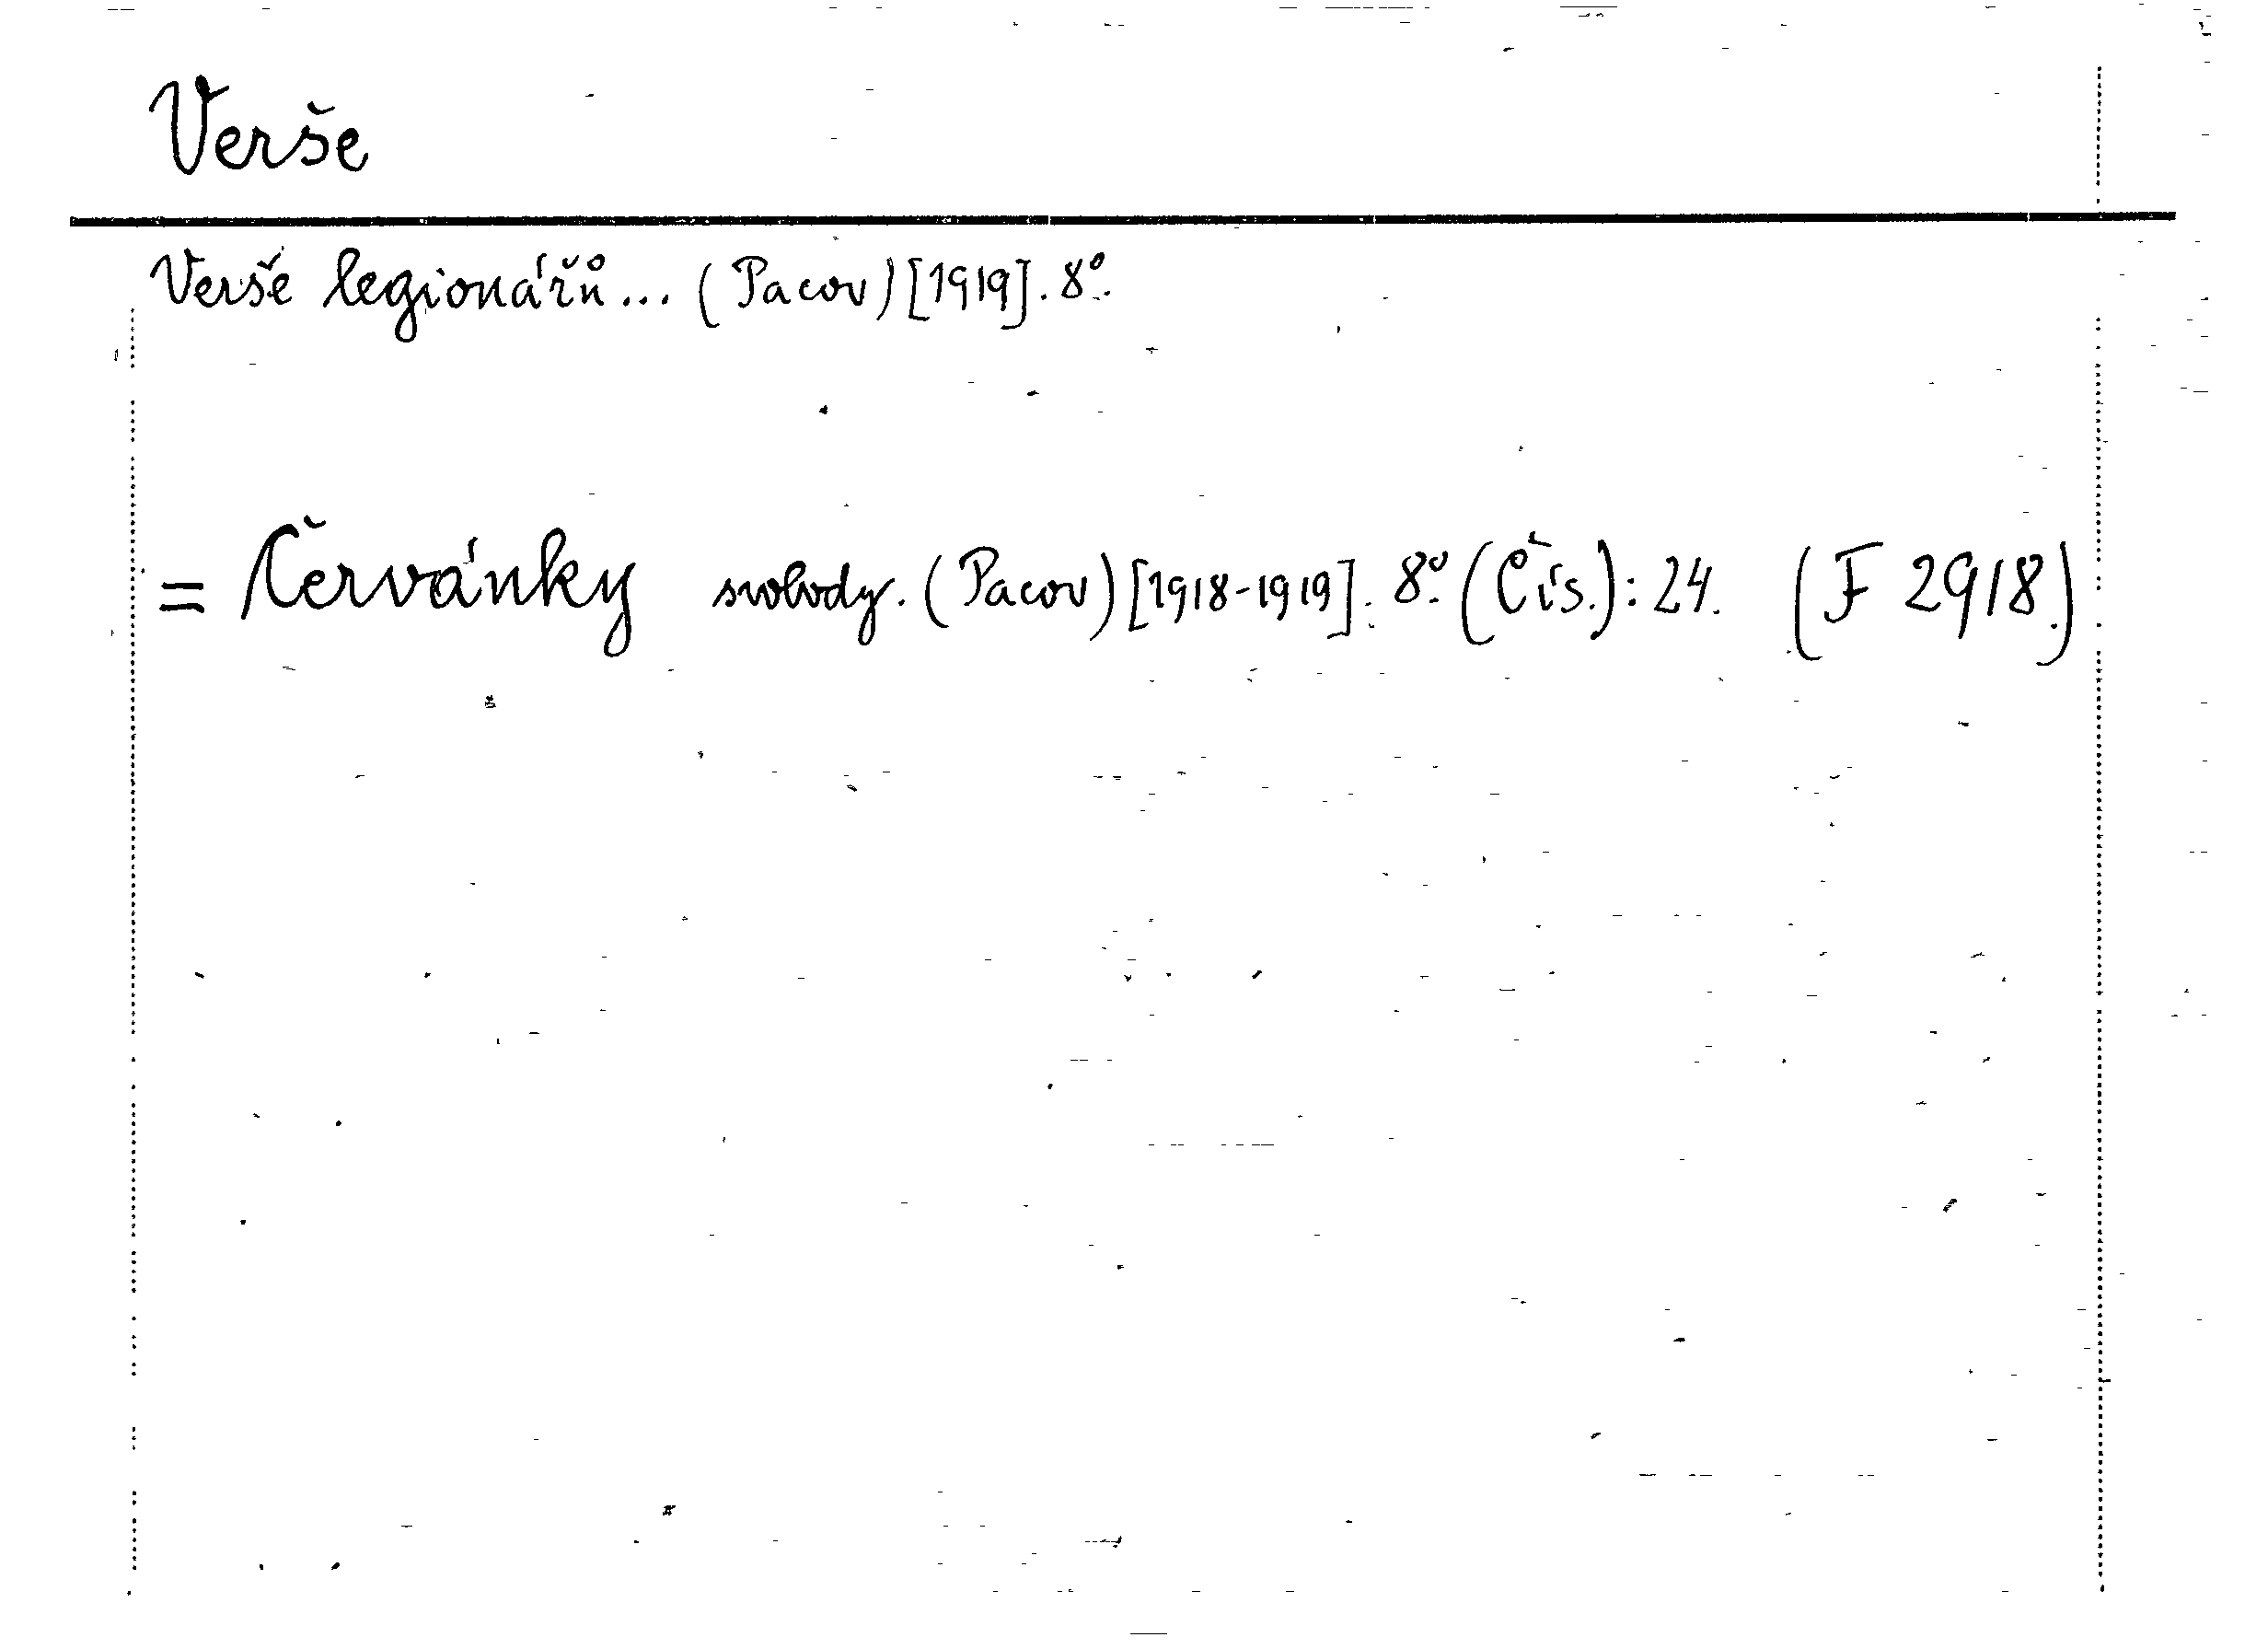 Verše
Verše legionářů... (Pacov) [1919]. 8°.
= Červánky svobody. (Pacov) [1918-1919]. 8°. (Čís.): 24. (F 2918.)